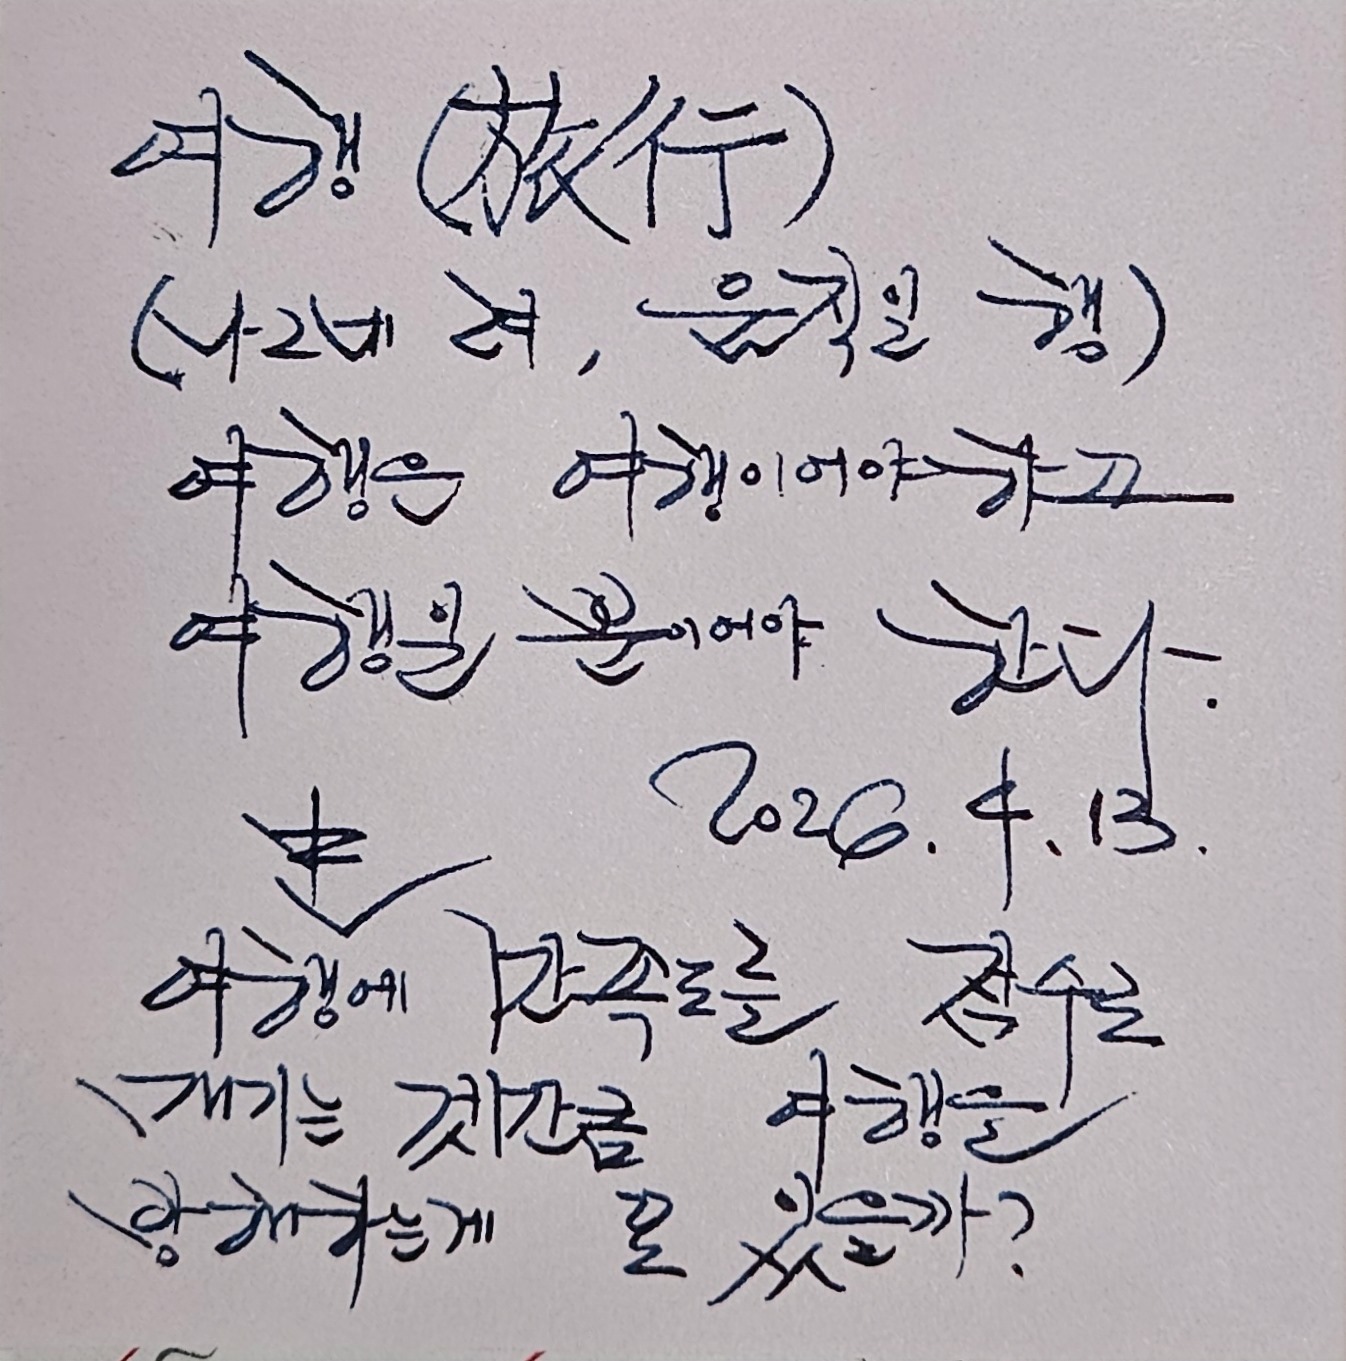 여행 (旅行)
(나그네 려, 움직일 행)
여행은 여행이어야 하고
여행일 뿐이어야 한다.
2026. 4. 13.
여행에 만족도를 점수로
매기는 것만큼 여행을
방해하는게 또 있을까?